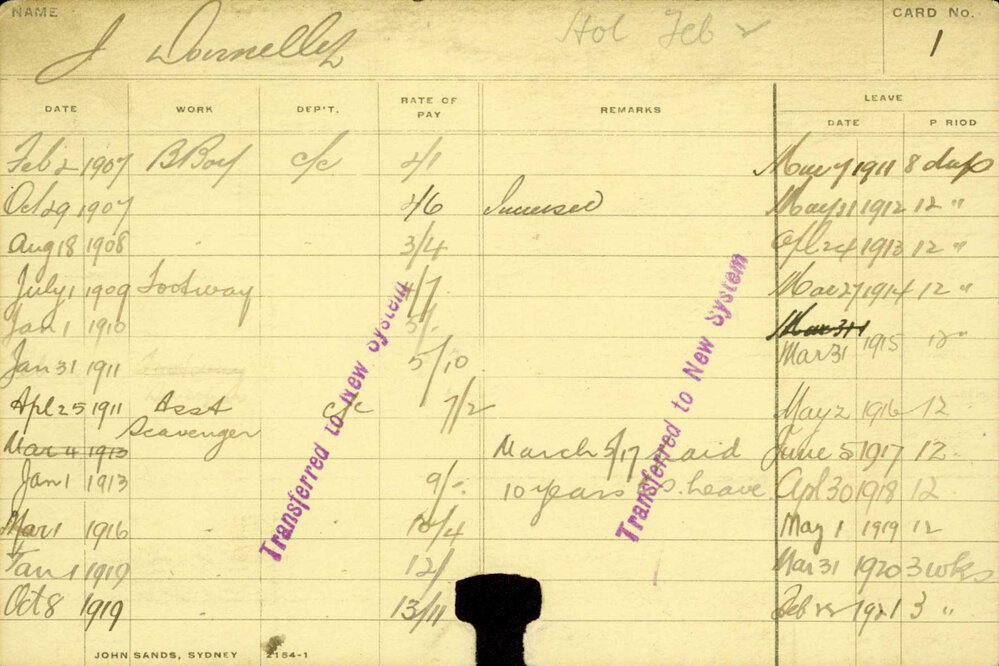 NAME
CARD No.
1
J Donnelley
Hol Feb
DATE WORK DEP'T. RATE OF PAY REMARKS LEAVE
DATE P RIOD
Feb 2 1907 B Boy c/c 2/1 Mar 7 1911 8 days
Oct 29 1907 2/6 Increased May 31 1912 12 "
Aug 18 1908 3/4 Apl 24 1913 12 "
July 1 1909 Footway 4/7 Mar 27 1914 12 "
Jan 1 1910 5/- Mar 31
Mar 31 1915 12 "
Jan 31 1911 5/10
Apl 25 1911 Asst c/c 7/2 May 2 1916 12
Scavenger
Mar 4 1913 March 5/17 Paid June 5 1917 12
Jan 1 1913 9/- 10 years S. Leave Apl 30 1918 12
Mar 1 1916 10/4 May 1 1919 12
Jan 1 1919 12/ Mar 31 1920 3 wks
Oct 8 1919 13/11 Feb 1921 3 "
Transferred to New System
Transferred to New System
JOHN SANDS, SYDNEY 2154-1